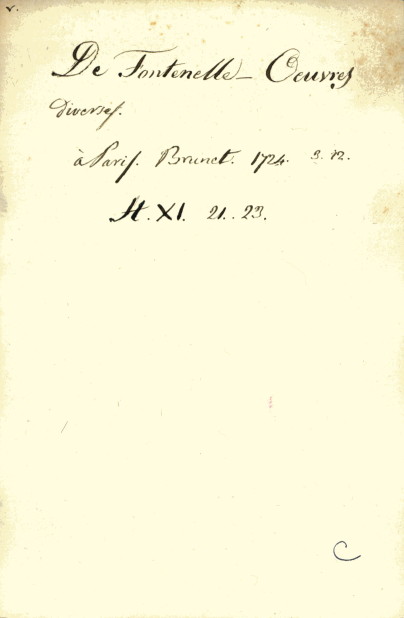 v.
De Fontenelle - Oeuvres
diverses.
à Paris. Brunet. 1724. 3. 12.
H. XI. 21. 23.
C